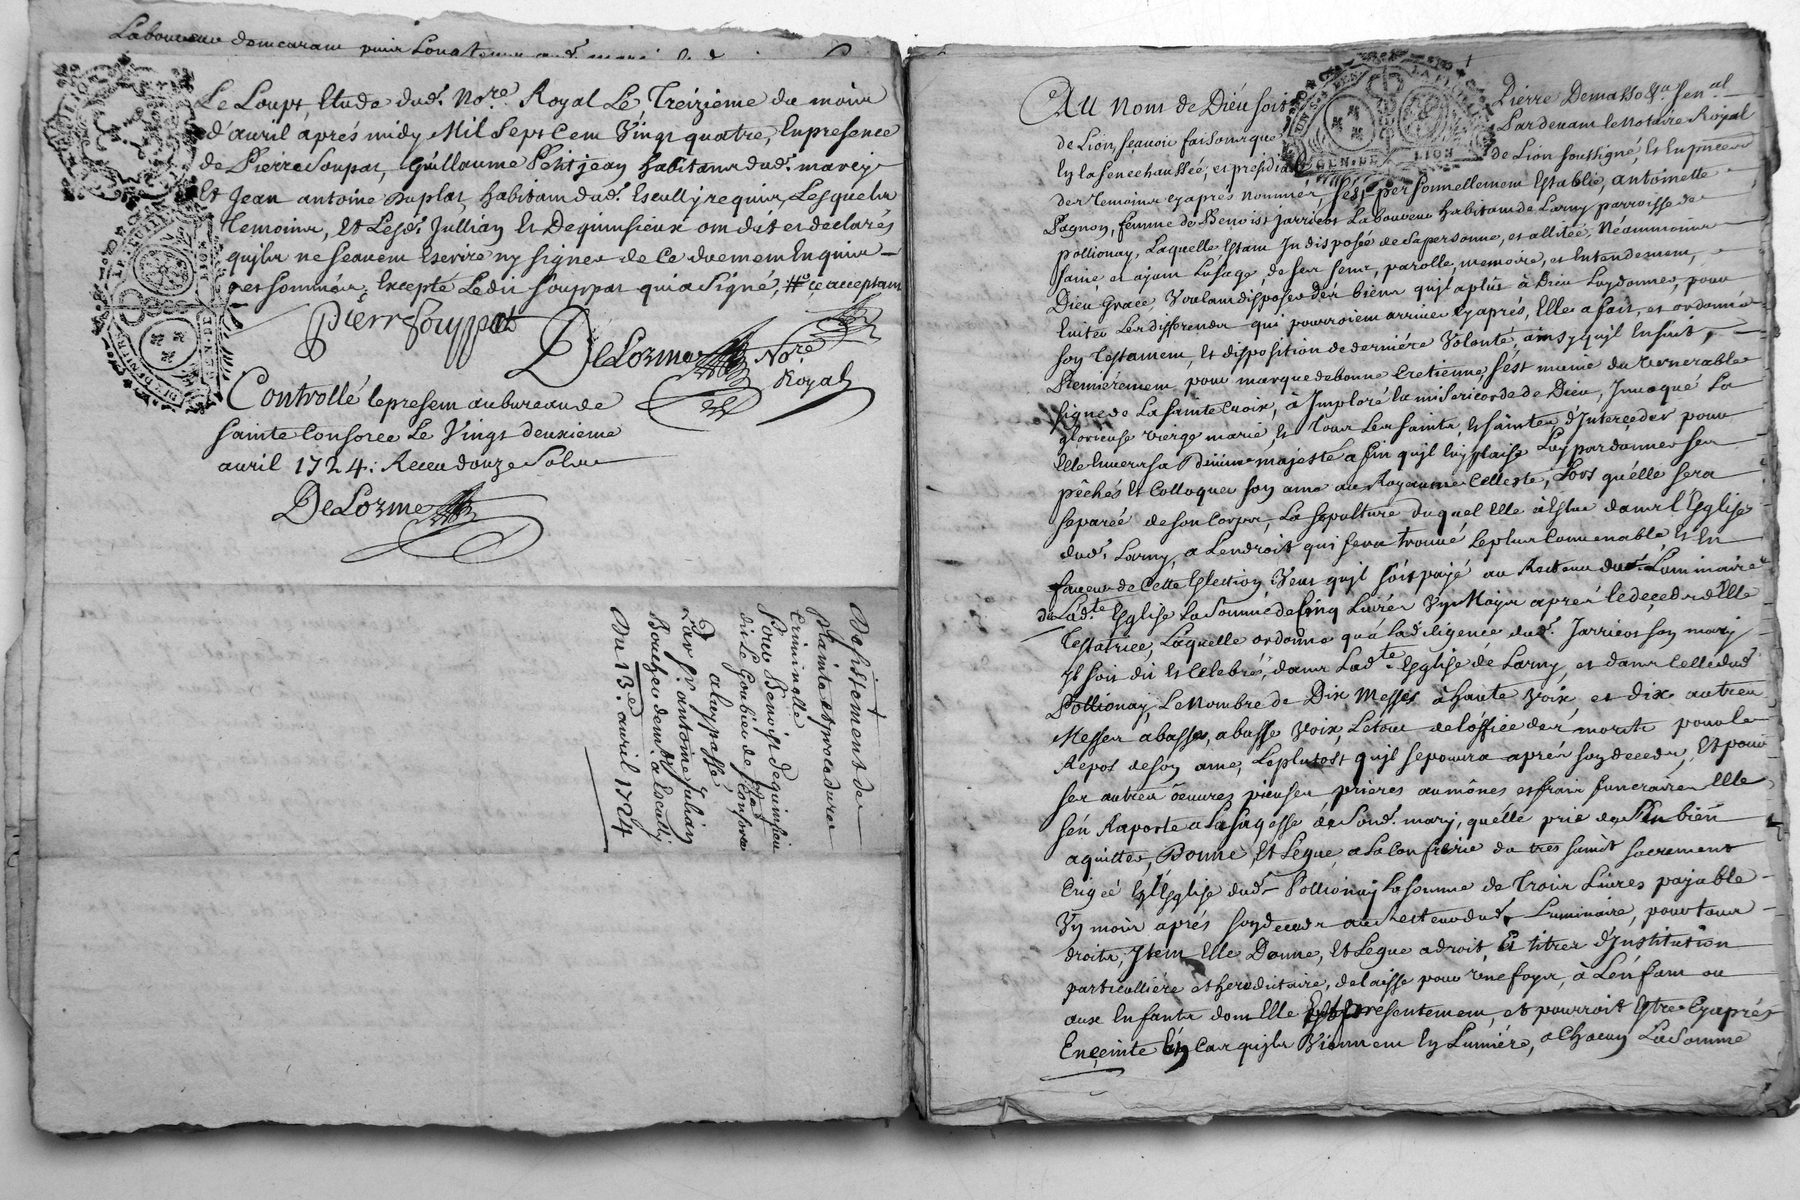 Le Loupt, Etude dud. No.re Royal Le Treizieme du mois
d'auril aprés midy Mil Sept Cent Vingt quatre, En presence
de Pierre Souppat, Guillaume Petitjean habitans dud. marcy
Et Jean antoine Duplat, habitant dud. Escully requis, Lesquels
temoins, Et Lesd. Jullian Et Dequinsieux ont dit et declarés
quils ne scauent Escrire ny signer de Ce duement Enquis
et sommés, Excepté Ledit Souppat qui a Signé, # ce acceptant
Pierre Souppat
DeLorme No.re
Royal
Controllé le present au bureau de
Sainte Consorce Le Vingt deuxieme
auril 1724: Receu douze Sols
DeLorme
Desistement de
plainte et procedure
Criminelle
Pour Benoist dequinsieu
dit Le Goubier de S.te Consorce
D alay passé
Par S.r antoine Julian
Boucher dem.t a Escully
Du 13.e auril 1724
GEN. DE LION
AU Nom de Dieu soit
Pierre Demasso
Sen.al
de Lion, sçauoir faisons que
Pardeuant le Notaire Royal
En la senechaussée, et presidial
de Lion soussigné, Et En presence
des temoins Cy aprés nommés, s'est personnellement Establie, antoinette
Pagnon, femme de Benoist Jarricot Laboureur habitant de Larny parroisse de
pollionay, Laquelle Estant Indisposée de Sa personne, et allitée, Néammoins
saine, et ayant L'usage de ses sens, parolle, memoire, et Entendement,
Dieu Grace, Voulant disposer des biens quil a plût à Dieu Luy donner, pour
Euiter Les differends qui pourroient arriuer Cy aprés, Elle a fait, et ordonné
son Testament, Et disposition de derniére Volonté, ainsy quil Ensuit,
Premiérement, pour marque de bonne Cretienne s'est munie du Venerable
signe de La sainte Croix, à Imploré la misericorde de Dieu, Inuoqué La
glorieuse Vierge marie, Et Tous Les Saints, Et saintes d'Interceder pour
Elle Enuers sa Diuine majesté a fin quil luy plaise Luy pardonner ses
péchés Et Colloquer son ame au Royaume Celleste, Lors qu'elle sera
separée de son Corps, La sepulture duquel Elle à Eslue dans l'Eglise
dud. Larny, a Lendroit qui sera trouué Le plus Conuenable, Et En
faueur de Cette Eslection Veut quil soit payé au Recteur du Luminaire
de Lad.te Eglise La somme de Cinq Liures Vn Mois aprés le deces d'Elle
Testatrice, Laquelle ordonne qu'a La diligence dud. Jarricot son mary
Il soit dit et Celebré, dans Lad.te Eglise de Larny, et dans Celle dud.
Pollionay, Le Nombre de Dix Messes à haute Voix, et dix autres
Messes abasses, a basse Voix, Le tout de l'office des morts pour le
Repos de son ame, Le plutost quil se pourra aprés son deceds, Et pour
ses autres oeuures pieuses prieres aumônes et frais funeraires Elle
s'en Raporte a La sagesse de Sond. mary, qu'elle prie de s'En bien
aquitter, Donne Et Légue a La Confrérie du tres Saint Sacrement
Erigeé En l'Eglise dud. Pollionay La somme de Trois Liures payable
Vn mois aprés son deceds au Recteur dud. Luminaire, pour tous
droits, Item Elle Donne, Et Legue a droit, Et titres d'Institution
particulliére et hereditaire, delaisse pour Vne foys, à L'Enfant ou
aux Enfants dont Elle Est presentement, et pourroit Estre Cy aprés
Enceinte En Cas quils Viennent En Lumiére, a Chacun La Somme